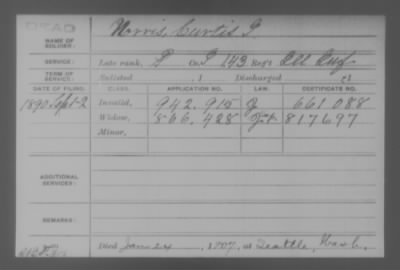 DEAD
NAME OF SOLDIER: Norris, Curtis
SERVICE: Late rank, P Co. 143 Reg't Ill Inf
TERM OF SERVICE: Enlisted , 1 Discharged , 1
DATE OF FILING. CLASS. APPLICATION NO. LAW. CERTIFICATE NO.
1890 Sept-2 Invalid, 942.915 661.088
Widow, 866.428 817697
Minor,
ADDITIONAL SERVICES:
REMARKS:
Died Jan 24, 1907, at Seattle, Wash.